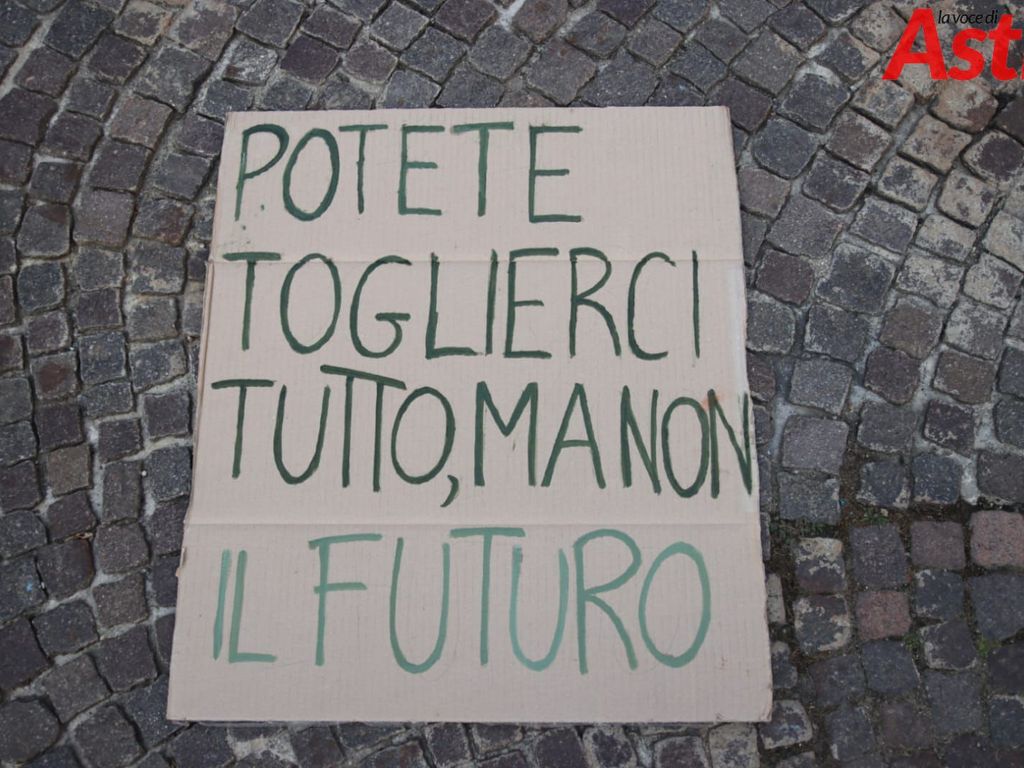 la voce di
Ast
POTETE
TOGLIERCI
TUTTO, MA NON
IL FUTURO